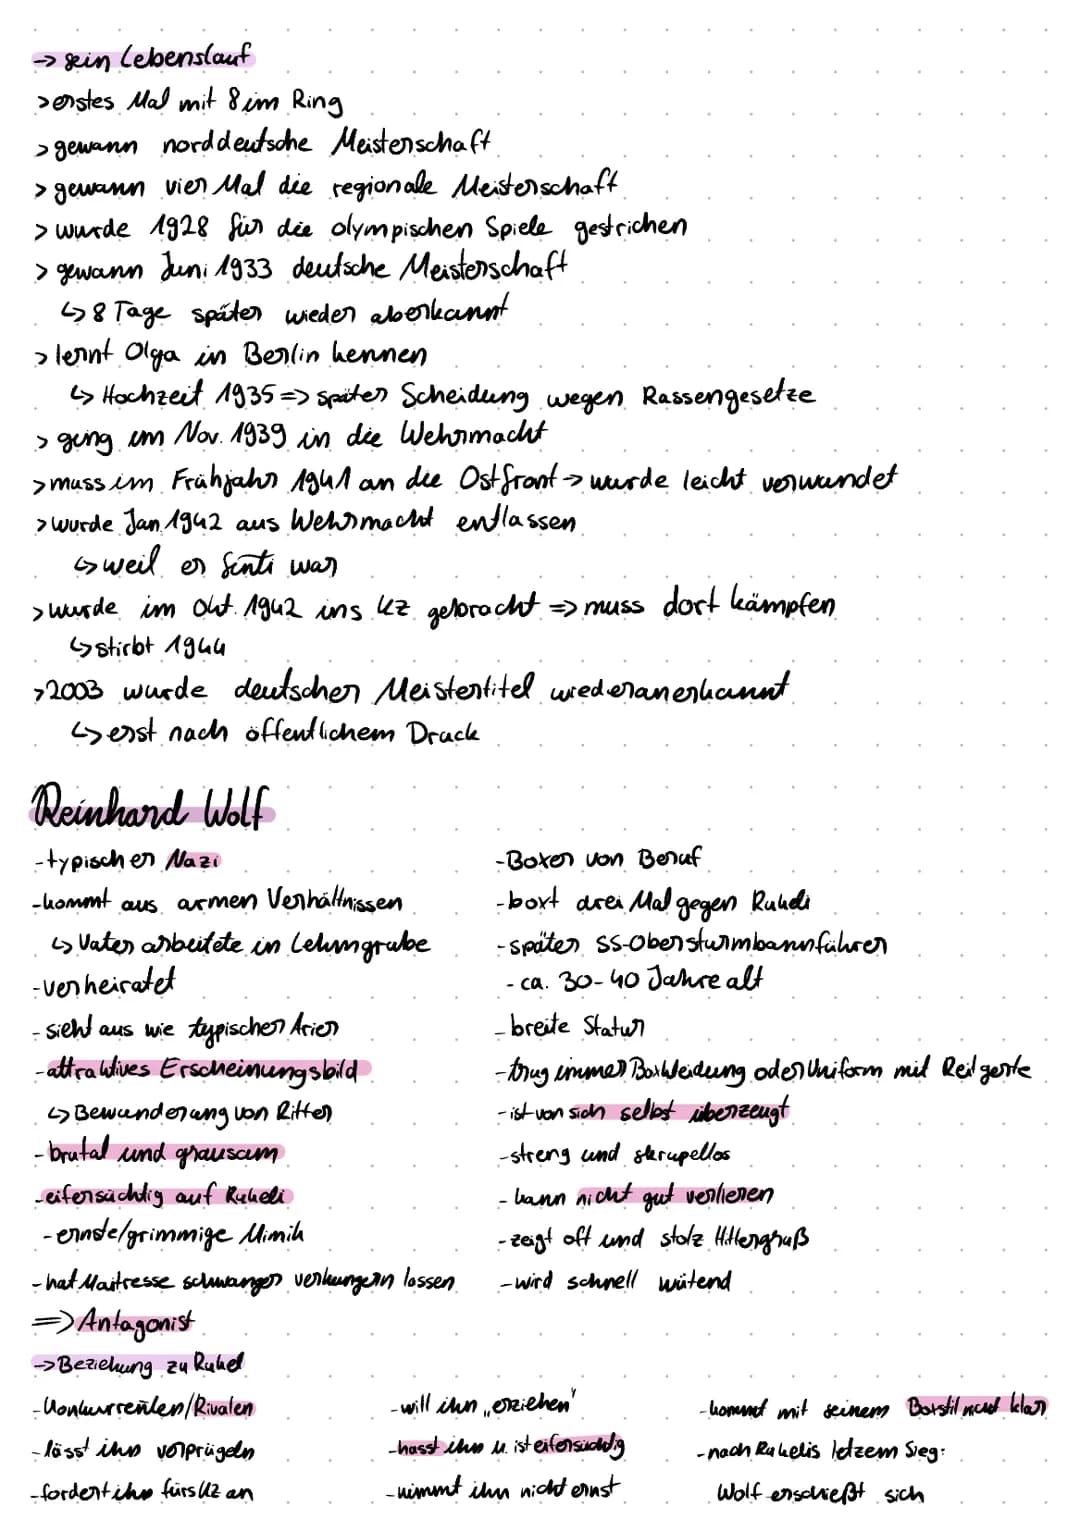 → sein Lebenslauf
> erstes Mal mit 8 im Ring
> gewann norddeutsche Meisterschaft
> gewann vier Mal die regionale Meisterschaft
> wurde 1928 für die olympischen Spiele gestrichen
> gewann Juni 1933 deutsche Meisterschaft
↳ 8 Tage später wieder aberkannt
> lernt Olga in Berlin kennen
↳ Hochzeit 1935 => später Scheidung wegen Rassengesetze
> ging im Nov. 1939 in die Wehrmacht
> muss im Frühjahr 1941 an die Ostfront → wurde leicht verwundet
> wurde Jan. 1942 aus Wehrmacht entlassen
↳ weil er Sinti war
> wurde im Okt. 1942 ins KZ gebracht => muss dort kämpfen
↳ stirbt 1944
> 2003 wurde deutscher Meistertitel wiederanerkannt
↳ erst nach öffentlichem Druck
Reinhard Wolf
- typischer Nazi
- kommt aus armen Verhältnissen
↳ Vater arbeitete in Lehmgrube
- verheiratet
- sieht aus wie typischer Arier
- attraktives Erscheinungsbild
↳ Bewunderung von Ritter
- brutal und grausam
- eifersüchtig auf Rukeli
- ernste/grimmige Mimik
- hat Maitresse schwanger verhungern lassen
=> Antagonist
- Boxer von Beruf
- boxt drei Mal gegen Rukeli
- später SS-Obersturmbannführer
- ca. 30-40 Jahre alt
- breite Statur
- trug immer Boxkleidung oder Uniform mit Reitgerte
- ist von sich selbst überzeugt
- streng und skrupellos
- kann nicht gut verlieren
- zeigt oft und stolz Hitlergruß
- wird schnell wütend
→ Beziehung zu Rukel
- Konkurrenten/Rivalen
- lässt ihn verprügeln
- fordert ihn fürs KZ an
- will ihn „erziehen"
- hasst ihn u. ist eifersüchtig
- nimmt ihn nicht ernst
- kommt mit seinem Boxstil nicht klar
- nach Rukelis letzem Sieg:
Wolf erschießt sich